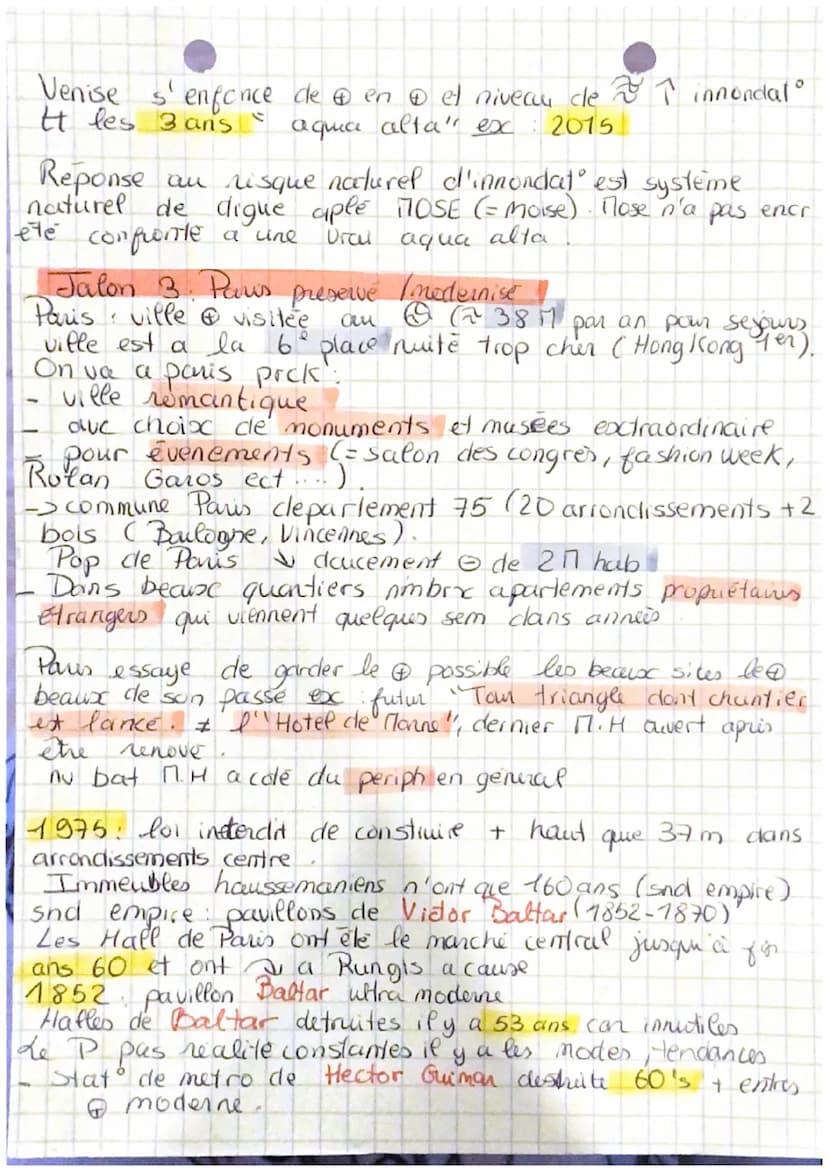 Venise s'enfonce de ⊕ en ⊕ et niveau de ↑ innondat°
tt les 3 ans "aqua alta" ex : 2015
Réponse au risque naturel d'innondat° est système
naturel de digue aplé MOSE (= moise). Mose n'a pas encr
été confronté a une vrai aqua alta.
Jalon 3 : Paris préservé / modernisé
Paris : ville ⊕ visitée au (≈ 38 M par an pour sejours
ville est a la 6° place nuité trop cher (Hong Kong 1er).
On va a paris prck :
- ville romantique
- avc choix de monuments et musées extraordinaire
- pour évenements (= salon des congrès, fashion week,
Rolan Garos ect ....).
-> commune Paris departement 75 (20 arrondissements + 2
bois (Boulogne, Vincennes).
Pop de Paris ↘ doucement ⊖ de 2 M hab
- Dans beaux quartiers nmbrx apartements propriétaires
étrangers qui viennent quelques sem dans année
Paris essaye de garder le ⊕ possible les beaux sites le ⊕
beaux de son passé ex : futur "Tour triangle dont chantier
est lancé. ≠ l'"Hotel de Marine", dernier M.H ouvert après
être renové.
nv bat M.H a coté du periph en géneral
1975 : loi interdit de construire + haut que 37 m dans
arrondissements centre.
Immeubles haussemaniens n'ont que 160 ans (snd empire)
snd empire : pavillons de Victor Baltar (1852-1870)
Les Hall de Paris ont été le marché central jusqu'à fin
ans 60 et ont a Rungis a cause
1852 : pavillon Baltar ultra moderne
Halles de Baltar detruites il y a 53 ans car innutiles
Le P pas réalité constantes il y a les modes, tendances
- Stat° de metro de Hector Guimar destruite 60's + entrés
⊕ moderne.